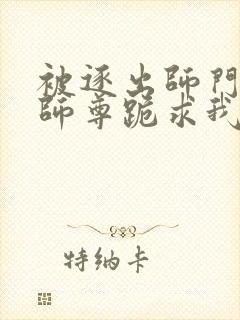 被逐出師門
師尊跪求我
特納卡